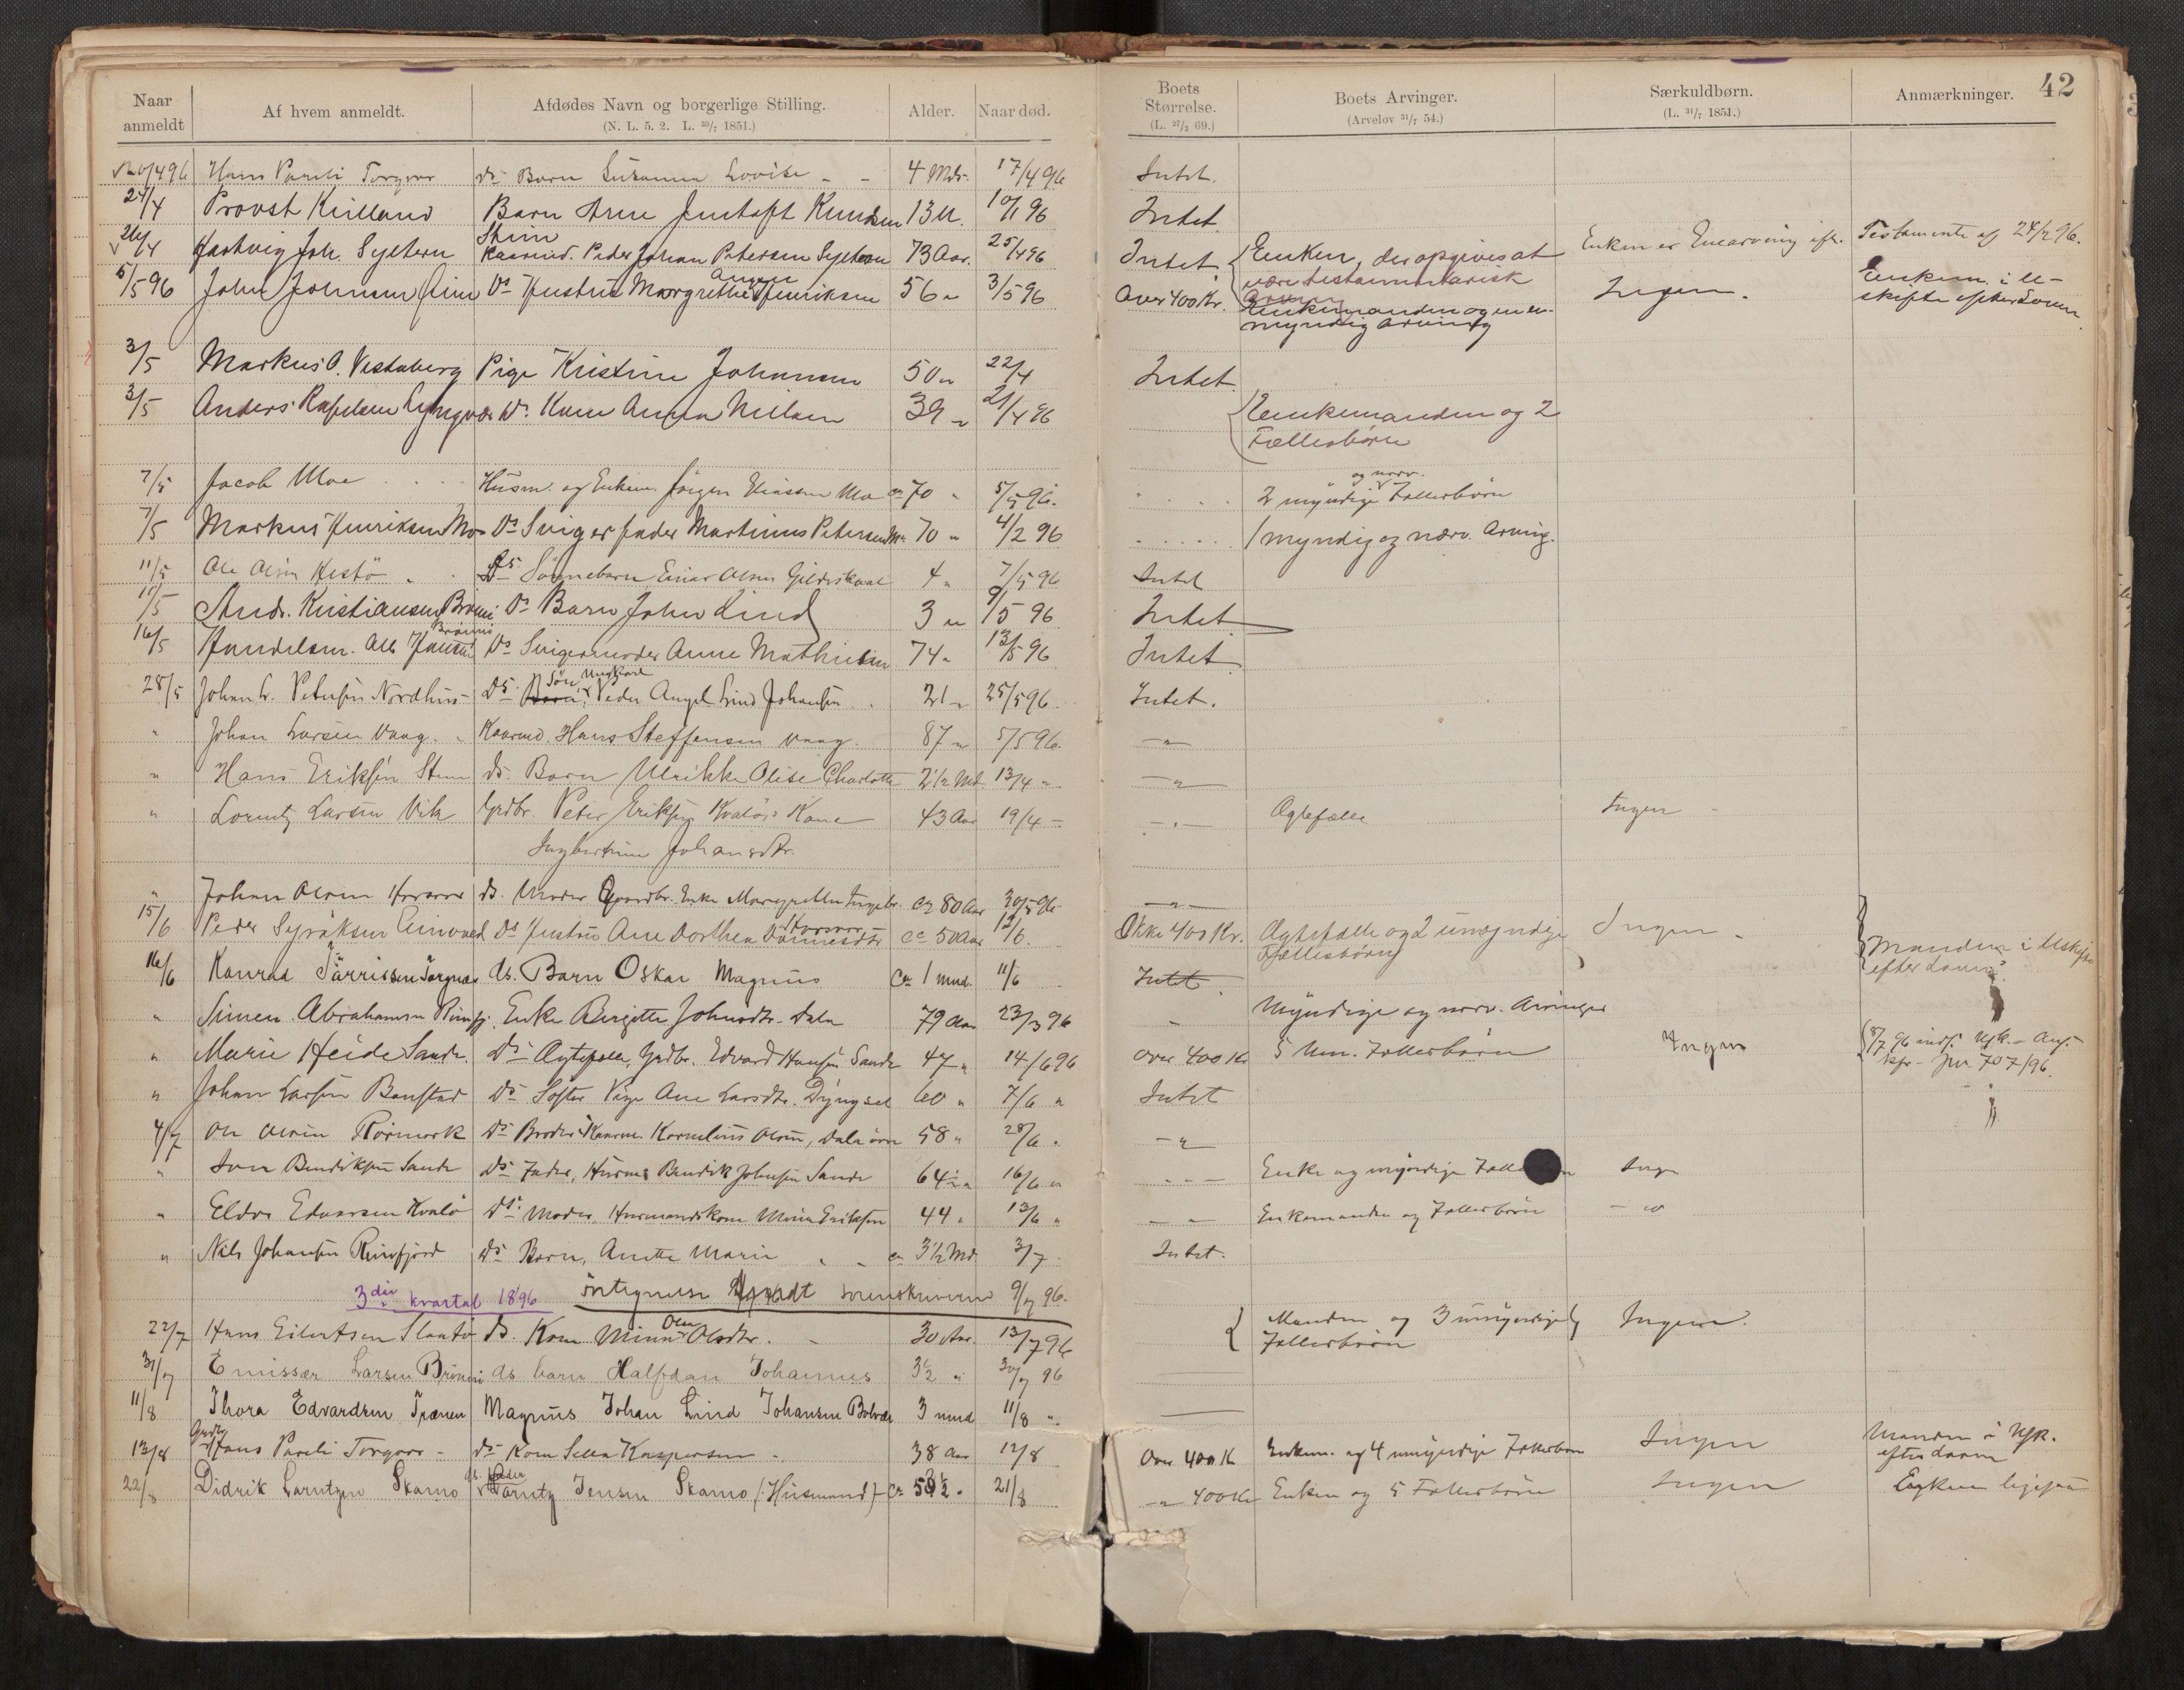 Naar anmeldt | Af hvem anmeldt. | Afdødes Navn og borgerlige Stilling. (N. L. 5. 2. L. 30/7 1851.) | Alder. | Naar død. | Boets Størrelse. (L. 27/3 69.) | Boets Arvinger. (Arvelov 31/7 54.) | Særkuldbørn. (L. 31/7 1851.) | Anmærkninger. 42
20/4 96 Hans Pareli Torgvær ds Barn Susanna Lovise 4 Mdr. 17/4 96 Intet.
24/4 Provst Kielland Barn Arne Knudsen 13 M. 10/1 96 Intet.
26/4 Hartvig Joh. Syltern Kaarmd. Peder Johan Petersen Syltern 73 Aar. 25/4 96 Intet. Enken, der opgives at være testamentarisk Arving Enken er Enearving eft. Testamente af 24/2 96.
5/5 96 John Johnsen Ds Hustru Margrethe Henriksen 56 " 3/5 96 Over 400 Kr. Enkemanden og en umyndig Arving Ingen. Enkem. i Uskifte efter Loven.
3/5 Markus O. Vestaberg Pige Kristine Johansen 50 " 22/4 Intet.
3/5 Anders Rafelsen Lyngvær Ds. Kone Anna Nilsen 39 " 21/4 96 Enkemanden og 2 Fællesbørn
7/5 Jacob Moe Husm. og Enkem. Jörgen Eliassen Moe ca 70 " 5/5 96. 2 myndige og nærv. Fællesbörn
7/5 Markus Henriksen Moe Ds Svigerfader Martinus Petersen Moe 70 " 4/2 96 1 myndig og nærv. Arving.
11/5 Ole Olsen Hestö Ds Sönnebarn Einar Olsen Gildeskaal 4 " 7/5 96 Intet
11/5 Andr. Kristiansen Brönnö Ds Barn John Lind 3 " 9/5 96 Intet
16/5 Handelsm. Alb Hansen Brönnö Ds Svigermoder Anne Mathisen 74 " 13/5 96 Intet
28/5 Johan L. Petersen Nordhus Ds Barn Sön Ungkarl Peder Angel Lind Johansen 21 " 25/5 96 Intet.
" Johan Larsen Vaag. Kaarmd. Hans Steffensen Vaag. 87 " 5/5 96. "
" Hans Eriksen Stem ds. Barn Ulrikke Olise Charlotte 2 1/2 Md. 13/4 " "
" Lorentz Larsen Vik Grdbr. Peter Eriksen Kvalös Kone 43 Aar 19/4 — " Ægtefælle Ingen
Ingbertine Johansdtr.
" Johan Olsen Horsvær ds. Moder Gaardbr. Enke Margrethe Ingebr. Horsvær ca 80 Aar 30/5 96 "
15/6 Peder Ds Hustru Ane Dorthea ca 50 Aar 12/6. Ikke 400 Kr. Ægtefælle og 2 umyndige Fællesbörn Ingen. Manden i Uskifte efter Loven
16/6 Konrad Torgnæs ds. Barn Oskar Magnus Ca 1 mnd. 11/6 Intet.
" Simen Abrahamsen Enke Birgitte Johnsdtr. 79 Aar 23/3 96 " Myndige og nærv. Arvinger
" Marie Heide Sande. Ds Ægtefælle, Grdbr. Edvard Hansen Sande 47 " 14/6 96 over 400 Kr 5 Um. Fællesbörn Ingen 8/7 96 Jnr. 707/96.
" Johan Larsen Bonstad Ds Söster Pige Ane Larsdtr. 60 " 7/6 " Intet
4/7 Ole Olsen Rörmark Ds Broder Kaarm. Kornelius Olsen, 58 " 28/6 " "
" Jon Bendiksen Sande Ds Fader, Husm. Bendik Johnsen Sande 64 " 16/6 " " Enke og myndige Ingen
" Eldor Edvarsen Kvalö Ds Moder, Husmandskone Eriksen 44 " 13/6 " " Enkemanden og Fællesbörn "
" Nils Johansen Reinfjord Ds Barn, Anette Marie ca 3 1/2 Md. 3/7 Intet.
3die kvartal 1896 Sorenskriveren 9/7 96.
22/7 Hans Eilertsen Slaatö ds. Kone Mina Olea Olsdtr. 30 Aar. 13/7 96 Manden og 3 umyndige Fællesbörn Ingen.
31/7 Emissær Larsen Brönnö ds barn Halfdan Johannes 3 1/2 " 30/7 96
11/8 Thora Edvardsen Trænen Magnus Johan Lind Johansen 3 mnd 11/8 "
13/8 Grdbr Hans Pareli Torgvær ds Kone Kaspersen 38 Aar 12/8 Over 400 Kr Enkem. og 4 umyndige Fællesbörn Ingen Manden i Usk. efter Loven
22/8 Didrik Larntzen Skamo ds. Fader Larntz Jensen Skamo (: Husmand) Ca 21/8 " 400 Kr Enken og 5 Fællesbörn Ingen Enken ligesaa